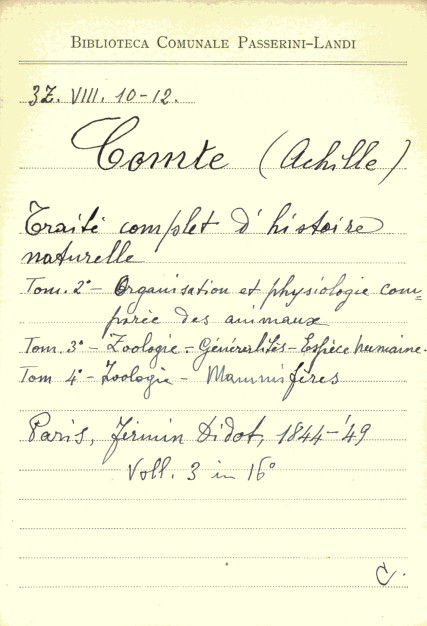 BIBLIOTECA COMUNALE PASSERINI-LANDI
3Z. VIII. 10-12.
Comte (Achille)
Traité complet d'histoire
naturelle
Tom. 2° - Organisation et physiologie com=
parée des animaux
Tom. 3° - Zoologie - Généralités - Espèce humaine.
Tom 4° - Zoologie - Mammifères
Paris, Firmin Didot, 1844-'49
Voll. 3 in 16°
C.